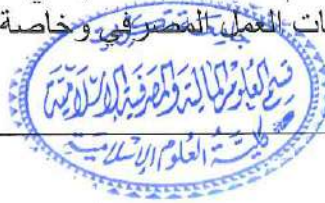 ات العمل المصرفي وخاصة
قسم العلوم المالية والمصرفية الإسلامية
كلية العلوم الإسلامية